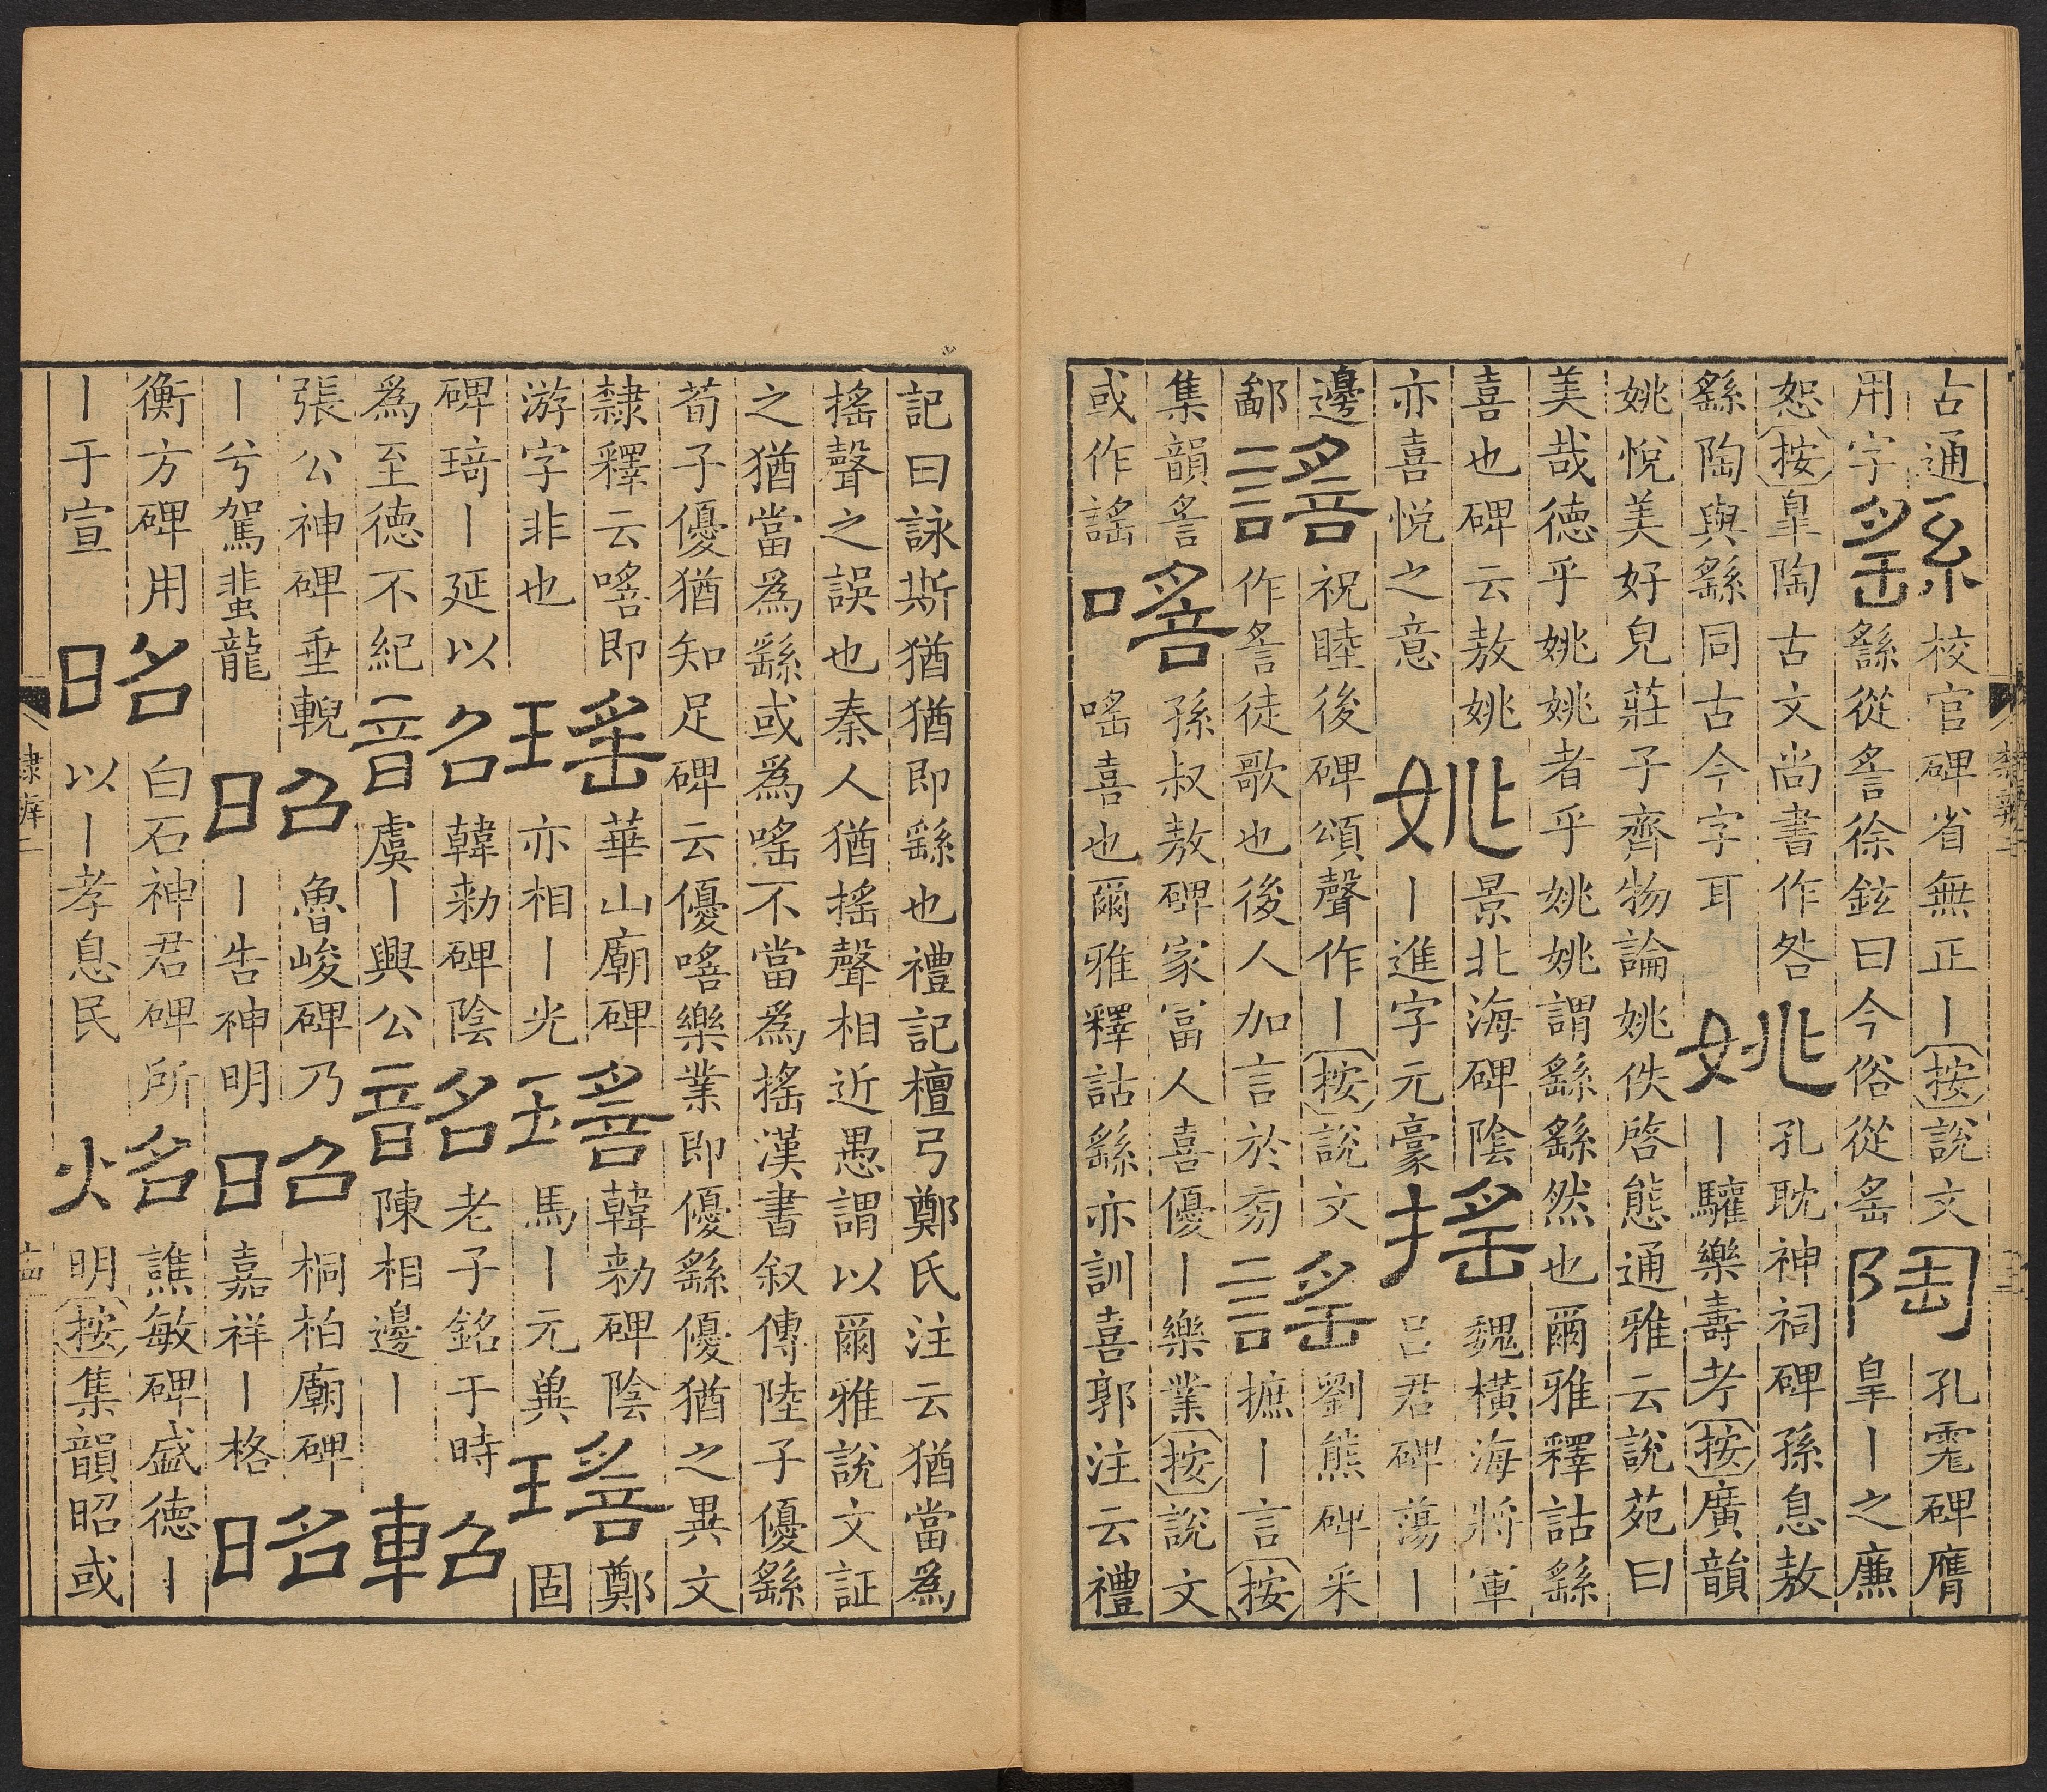 古通
用字
繇
校官碑省無正丨按說文
繇從䚻徐鉉曰今俗從䍃
陶
孔碑膺
臯丨之廉
恕按臯陶古文尚書作咎
繇陶與繇同古今字耳
姚
孔耽神祠碑孫息敖
丨驩樂壽考按廣韻
姚悅美好皃莊子齊物論姚佚啓態通雅云說苑曰
美哉德乎姚姚者乎姚姚謂繇繇然也爾雅釋詁繇
喜也碑云敖姚
亦喜悅之意
姚
景北海碑陰
丨進字元豪
搖
魏橫海將軍
呂君碑蕩丨
邊
鄙
謠
祝睦後碑頌聲作丨按說文
作䚻徒歌也後人加言於旁
謠
劉熊碑采
摭丨言按
集韻䚻
或作謠
嗂
孫叔敖碑家冨人喜優丨樂業按說文
嗂喜也爾雅釋詁繇亦訓喜郭注云禮
隸辨二
記曰詠斯猶猶即繇也禮記檀弓鄭氏注云猶當爲
搖聲之誤也秦人猶搖聲相近愚謂以爾雅說文証
之猶當爲繇或爲嗂不當爲搖漢書叙傳陸子優繇
荀子優猶知足碑云優嗂樂業即優繇優猶之異文
隸釋云嗂即
游字非也
瑤
華山廟碑
亦相丨光
瑤
韓勑碑陰
馬丨元㒷
瑤
鄭
固
碑琦丨延以
爲至德不紀
韶
韓勑碑陰
虞丨興公
韶
老子銘于時
陳相邊丨
軺
張公神碑垂輗
丨兮駕蜚龍
昭
魯峻碑乃
丨告神明
昭
桐柏廟碑
嘉祥丨格
昭
衡方碑用
丨于宣
昭
白石神君碑所
以丨孝息民
炤
譙敏碑盛德丨
明按集韻昭或
隸辨二